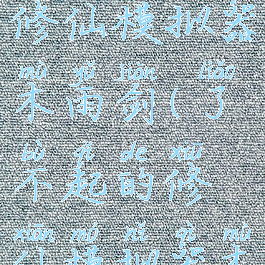 修仙模拟器
mù yǔ jiàn liǎo
木雨剑(了
bù qǐ de xiū
不起的修
xiān mó nǐ qì mù
仙模拟器木